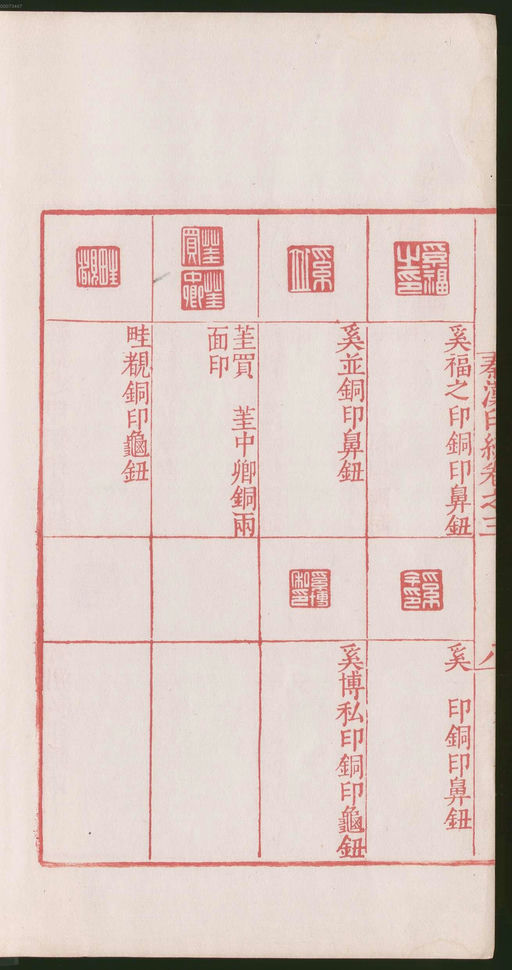 秦漢印統卷之三
八
奚福之印銅印鼻鈕
奚並銅印鼻鈕
茥買 茥中卿銅兩
面印
畦覩銅印龜鈕
奚 印銅印鼻鈕
奚博私印銅印龜鈕